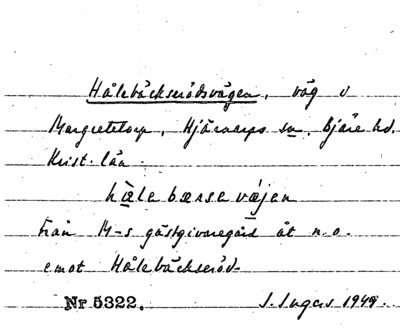 Hålebäckserödsvägen, väg v
Margretetorp, Hjärnarps sn, Bjäre hd.
Krist. län.
hålebæsevæjen
från M-s gästgivaregård åt n.o.
emot Hålebäckseröd.
Nr 5322. I. Ingers 1949.